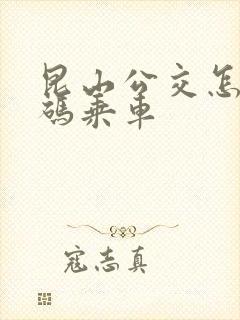 昆山公交怎
码乘车
寇志真